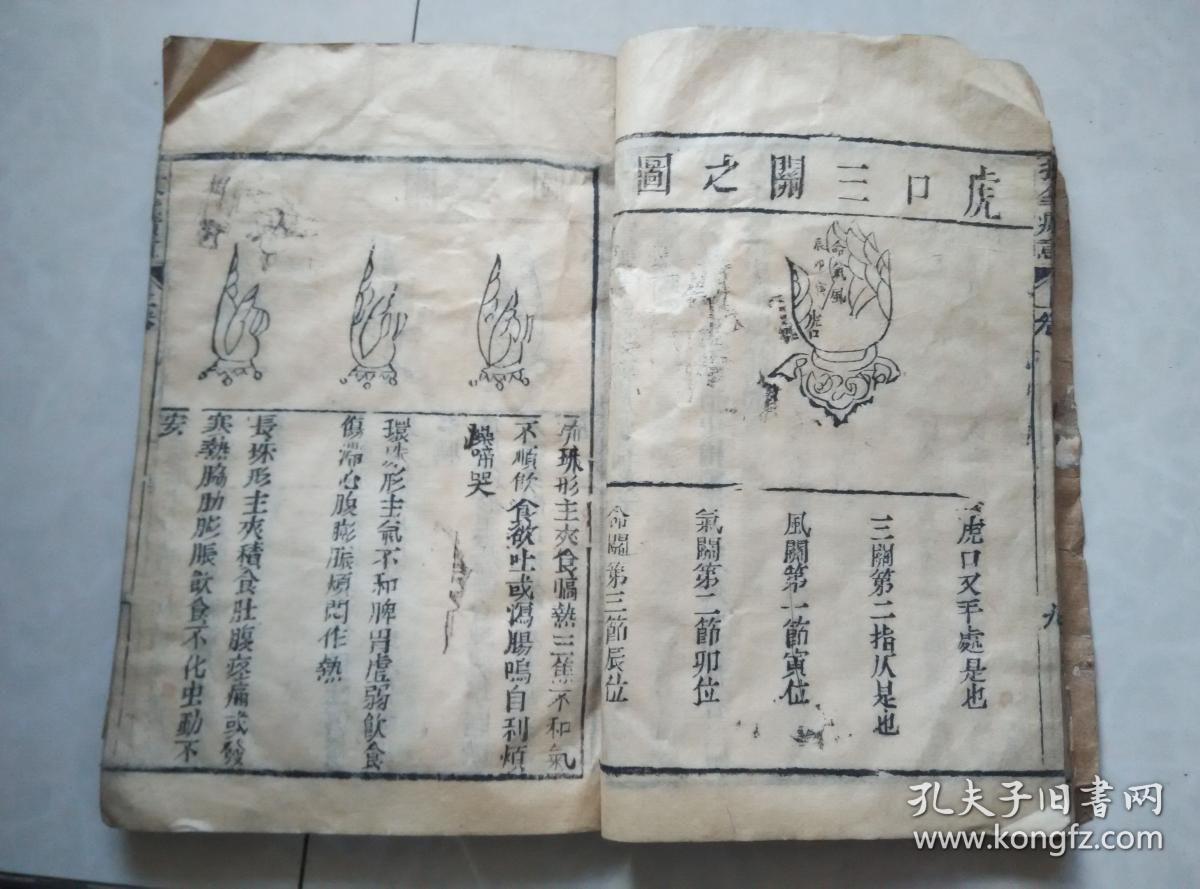 虎口三關之圖
命氣風
辰卯寅
虎口
虎口叉手處是也
三關第二指仄是也
風關第一節寅位
氣關第二節卯位
命關第三節辰位
九
珠形主夾食膈熱三焦不和氣
不順飲食欲吐或瀉腸鳴自利煩
躁啼哭
環珠形主氣不和脾胃虛弱飲食
傷滯心腹膨脹煩悶作熱
長珠形主夾積食肚腹疼痛或發
寒熱脇肋膨脹飲食不化虫動不
安
孔夫子旧书网
www.kongfz.com